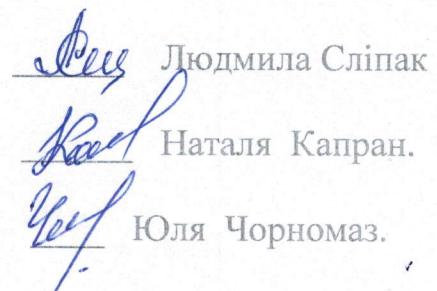 Людмила Сліпак
Наталя Капран.
Юля Чорномаз.